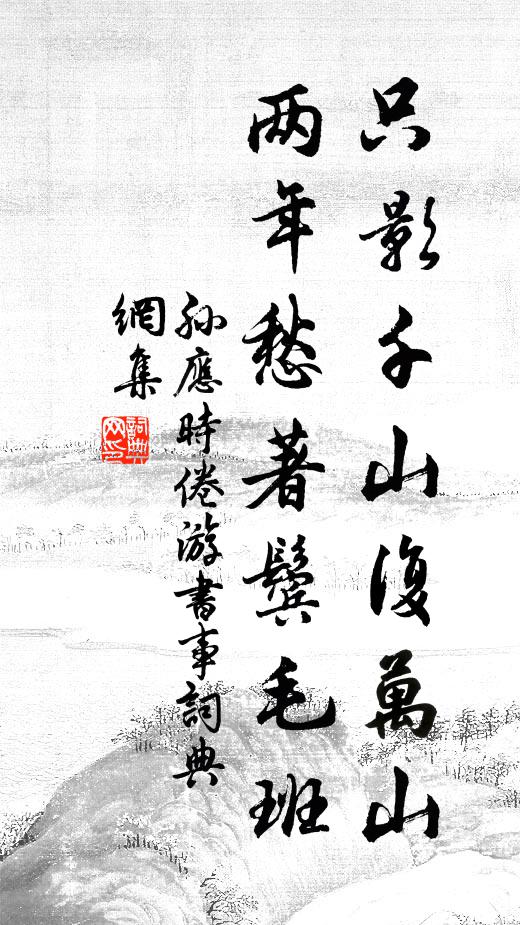 只影千山復萬山
两年愁著鬢毛班
孫應時倦游書事詞典
網集
詞典網印